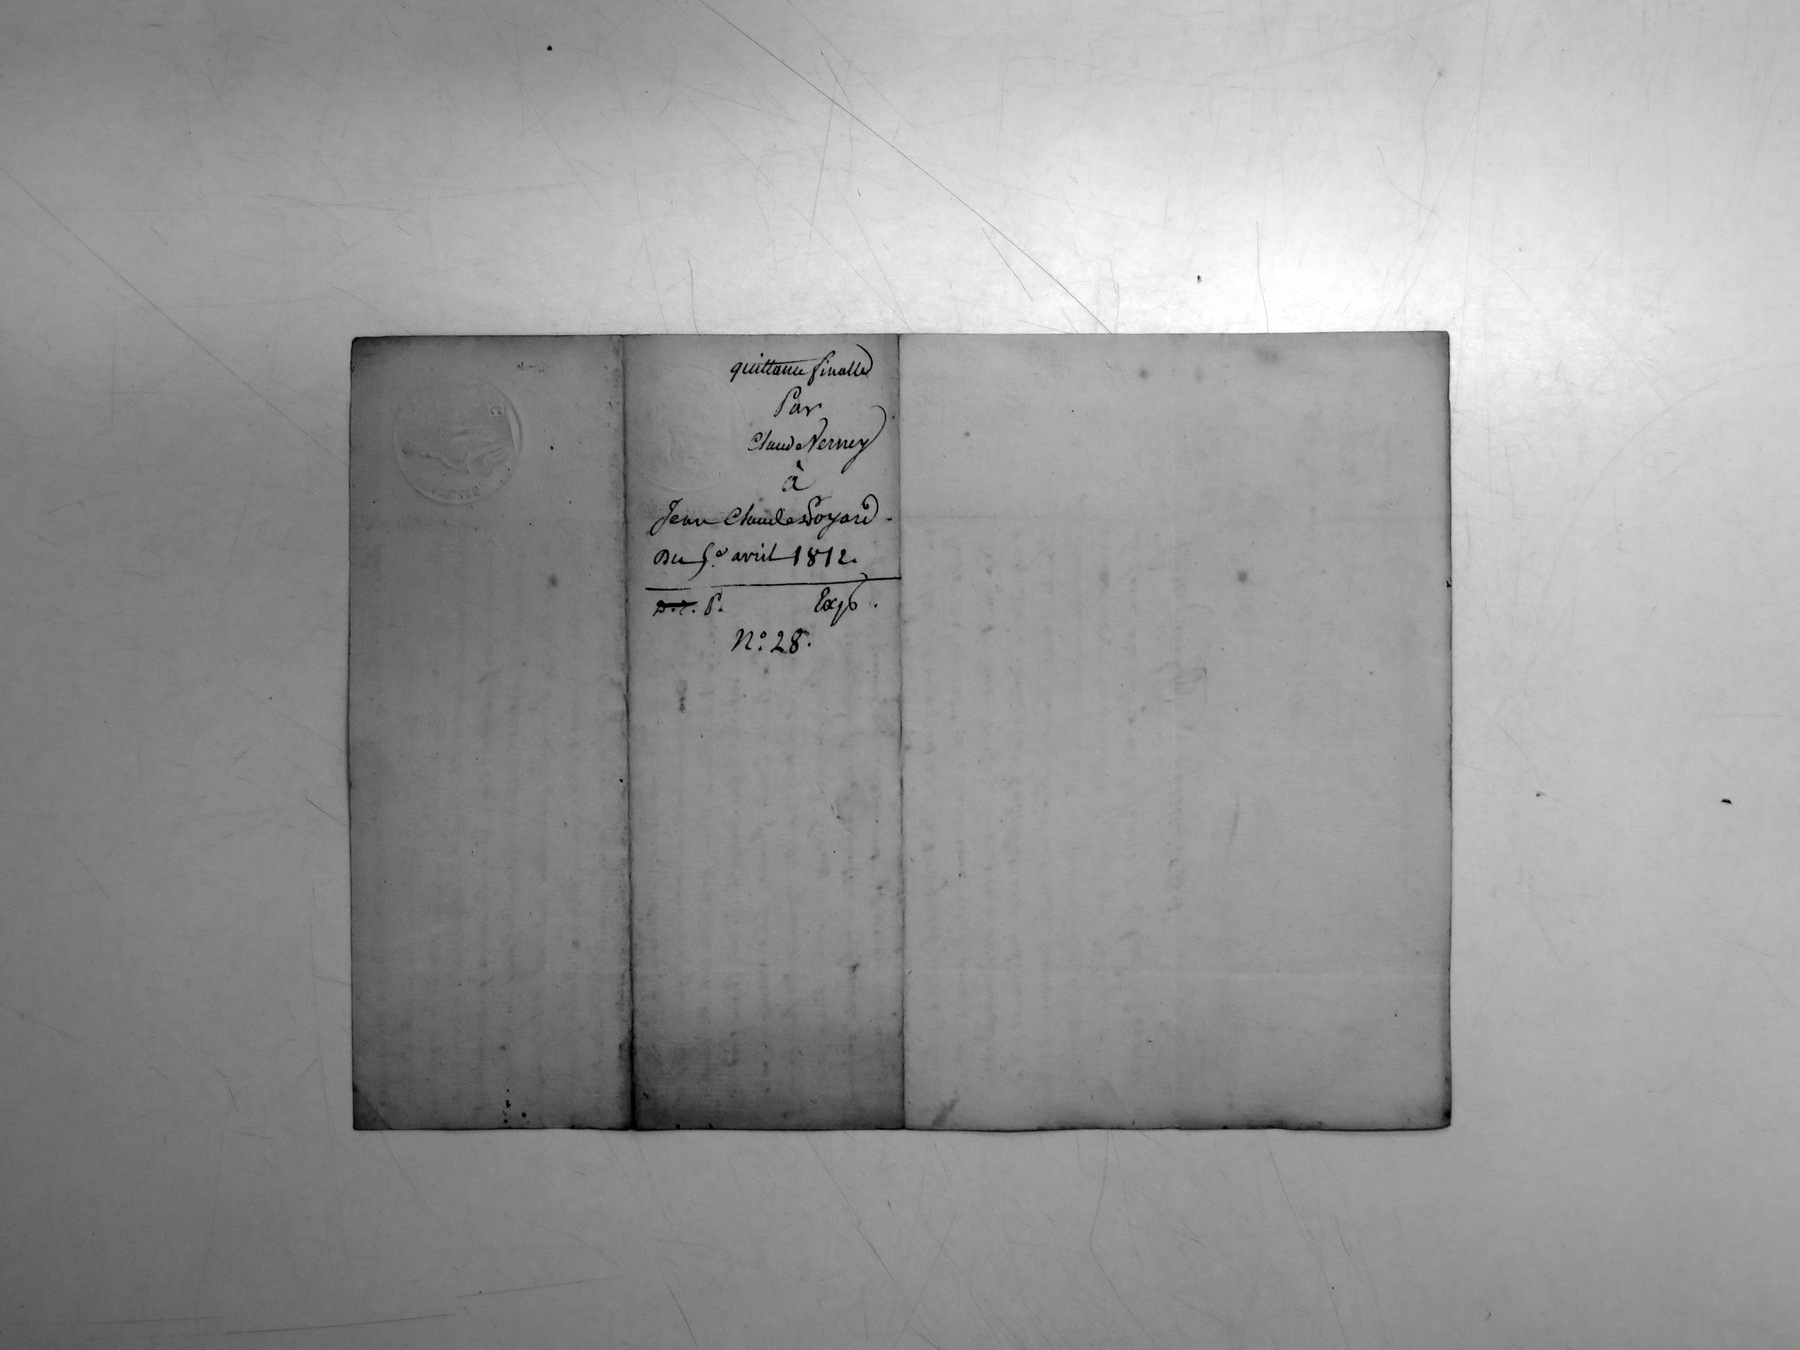 quittance finalle
Par
Claude Verney
à
Jean Claude Soyard.
Du 5.e avril 1812.
D.2. P. Exp.
N.o 28.